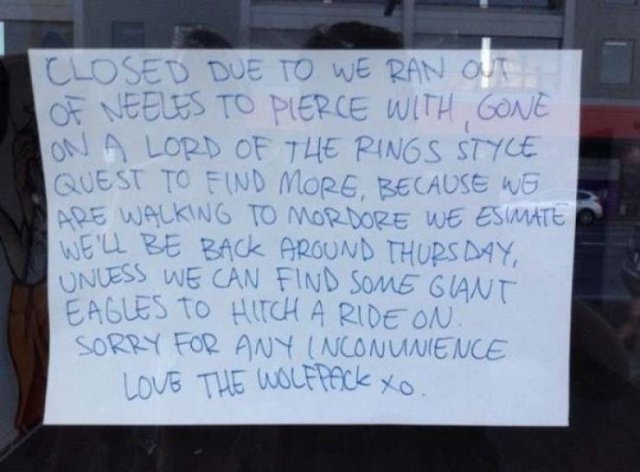 CLOSED DUE TO WE RAN OUT
OF NEELES TO PIERCE WITH, GONE
ON A LORD OF THE RINGS STYLE
QUEST TO FIND MORE, BECAUSE WE
ARE WALKING TO MORDORE WE ESIMATE
WE'LL BE BACK AROUND THURSDAY,
UNLESS WE CAN FIND SOME GIANT
EAGLES TO HITCH A RIDE ON.
SORRY FOR ANY INCONVINIENCE
LOVE THE WOLFPACK XO.